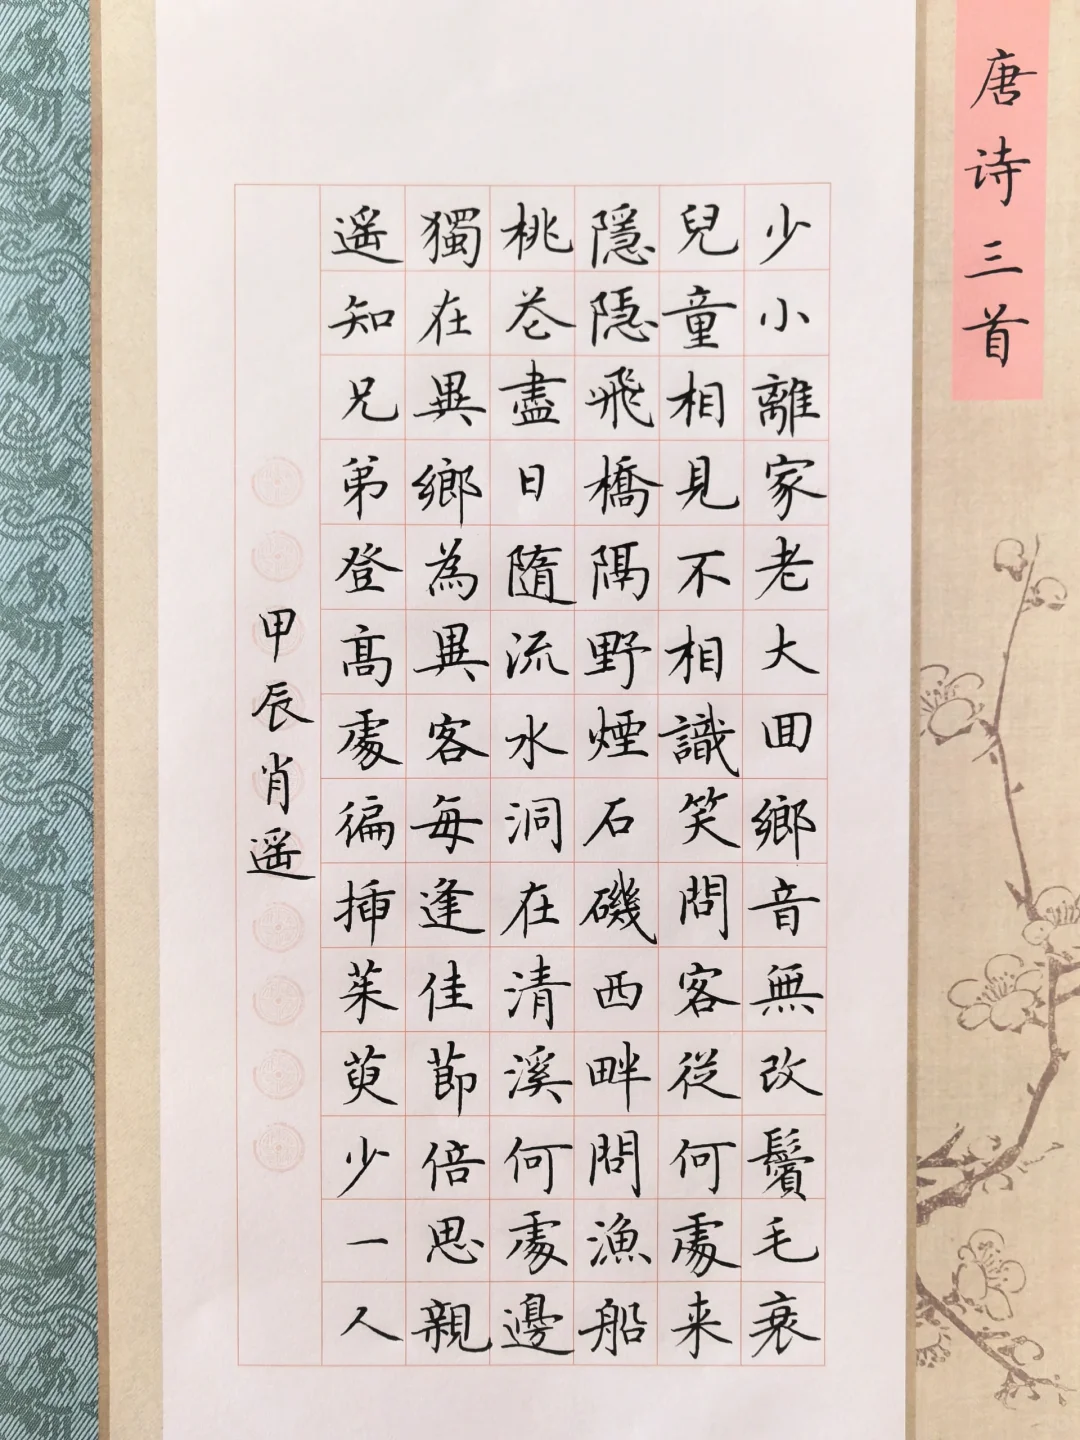 唐诗三首
少小離家老大回鄉音無改鬢毛衰
兒童相見不相識笑問客從何處来
隱隱飛橋隔野煙石磯西畔問漁船
桃花盡日隨流水洞在清溪何處邊
獨在異鄉為異客每逢佳節倍思親
遥知兄弟登高處徧插茱萸少一人
甲辰肖遥